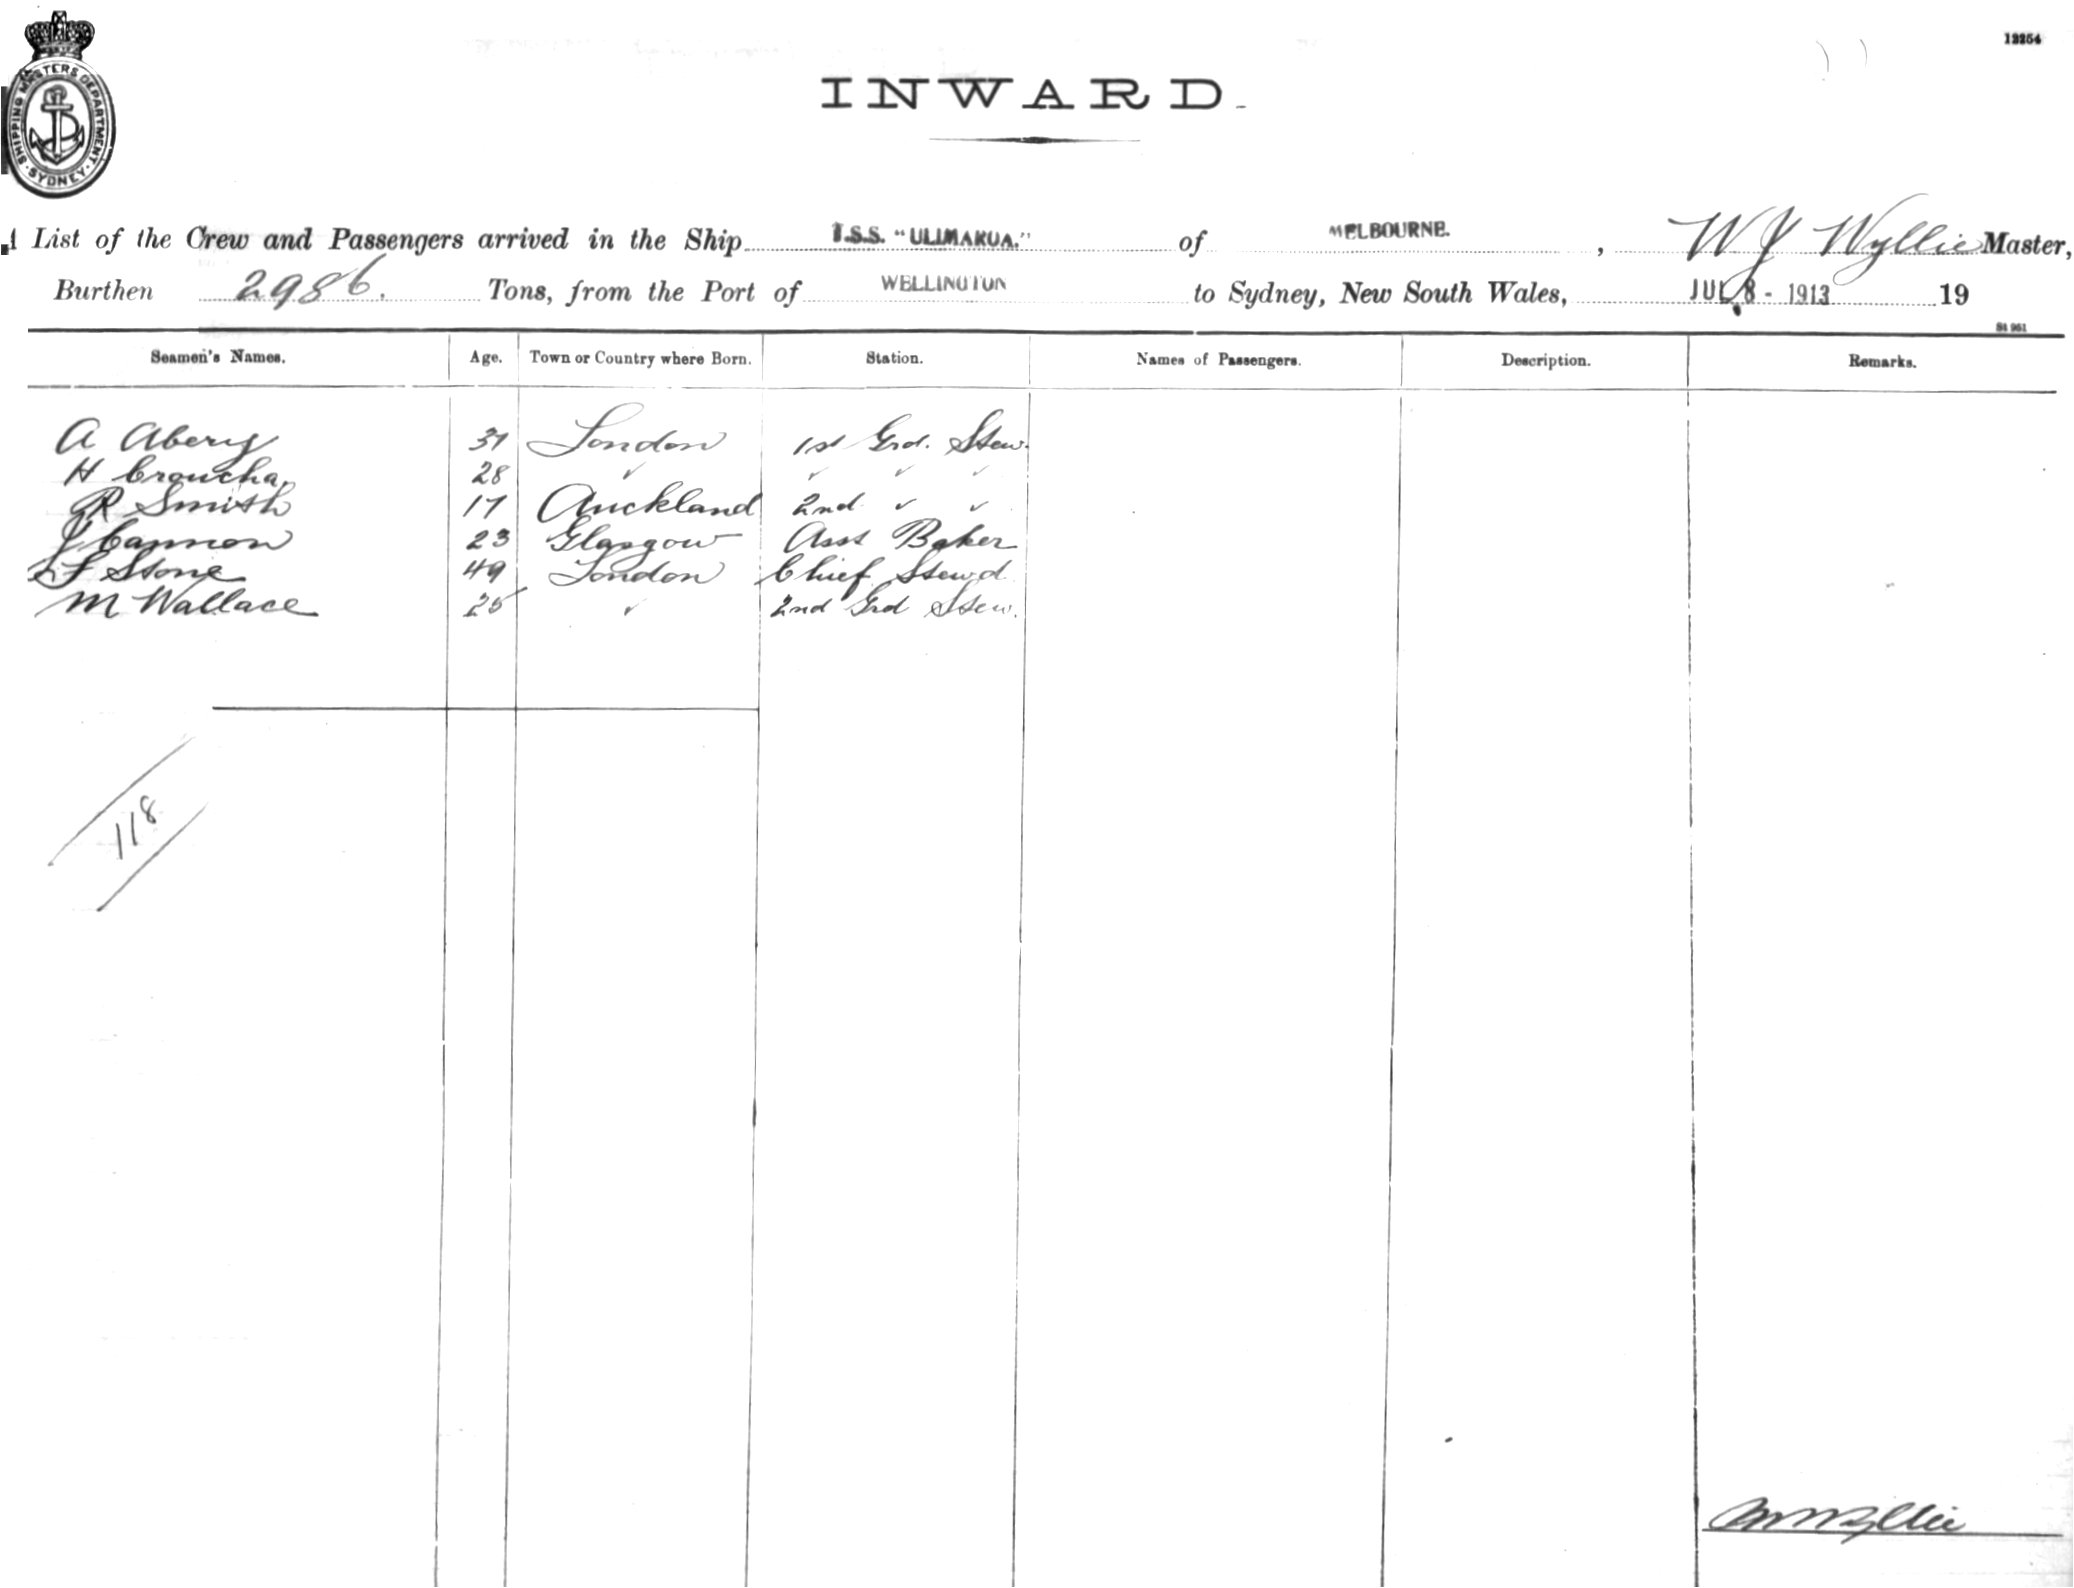 SHIPPING MASTERS DEPARTMENT. SYDNEY
12254
INWARD.
A List of the Crew and Passengers arrived in the Ship T.S.S. "ULIMAROA." of MELBOURNE. , W J Wyllie Master,
Burthen 2986. Tons, from the Port of WELLINGTON to Sydney, New South Wales, JUL 8 - 1913 19
St 961
Seamen's Names. Age. Town or Country where Born. Station. Names of Passengers. Description. Remarks.
A Abery London 1st Grd. Stew.
H Croucha 28 ✓ ✓ ✓ ✓
R Smith 17 Auckland 2nd ✓ ✓
J Cannon 23 Glasgow Asst Baker
F Stone 49 London Chief Stewd
M Wallace 25 ✓ 2nd Grd Stew.
118
WJWyllie